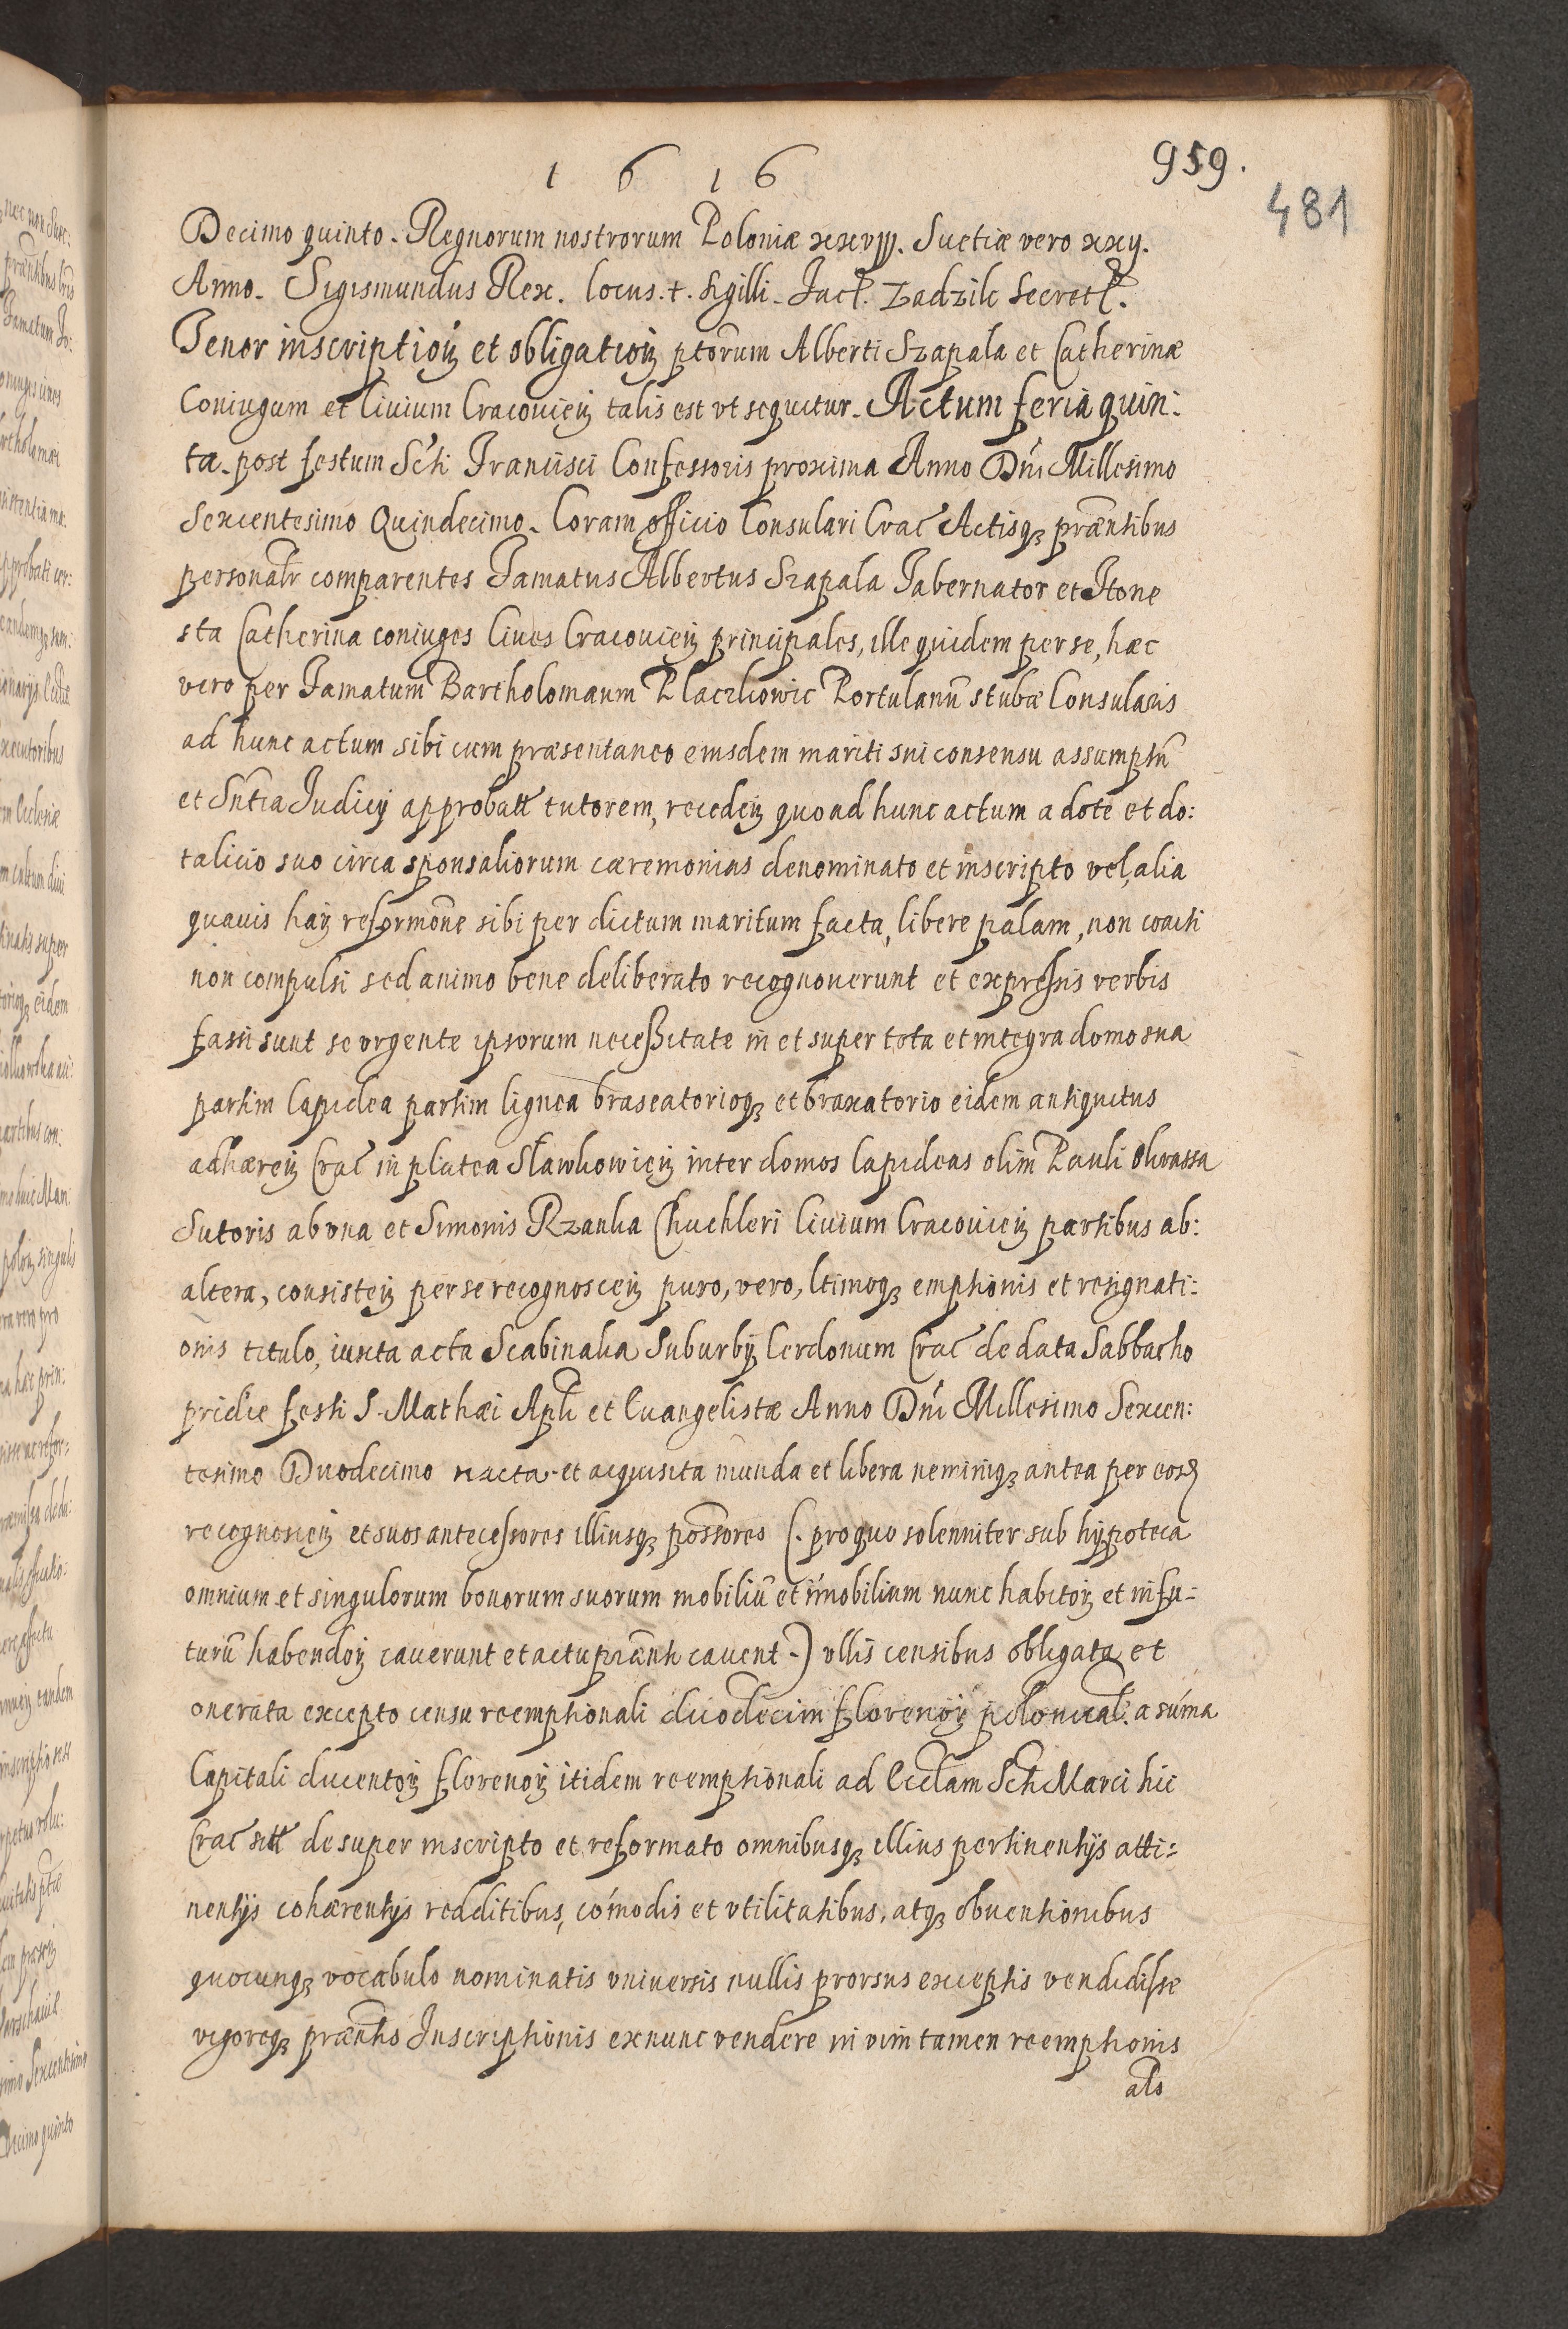 1616
959.
481
Decimo quinto. Regnorum nostrorum Poloniæ xxviij. Suetiæ vero xxij.
Anno. Sigismundus Rex. locus. +. Sigilli. Jacƀ. Zadzik Secretƀ.
Tenor inscriptioń et obligatioń ptorum Alberti Szapala et Catherinæ
Coniugum et Ciuium Cracouień talis est vt sequitur. Actum feria quin:
ta. post festum Scti Francisci Confessoris proxima Anno Dńi Millesimo
Sexcentesimo Quindecimo. Coram officio Consulari Crac Actisqꝫ præntibus
personalr comparentes Famatus Albertus Szapala Tabernator et Hone
sta Catherina coniuges Ciues Cracouień principales, ille quidem per se, hæc
vero per Famatum Bartholomæum Placzkowic Portulanū stubæ Consularis
ad hunc actum sibi cum præsentaneo eiusdem mariti sui consensu assumptū
et Sńtia Judicij approbatt tutorem, recedeń quo ad hunc actum a dote et do:
talicio suo circa sponsaliorum cæremonias denominato et inscripto vel, alia
quauis hań reformōne sibi per dictum maritum facta, libere palam, non coacti
non compulsi sed animo bene deliberato recognouerunt et expressis verbis
fassi sunt se vrgente ipsorum necessitate in et super tota et integra domo sua
partim lapidea partim lignea braseatorioqꝫ et braxatorio eidem antiquitus
adhæreń Crac in platea Sławkowień inter domos lapideas olim Pauli
Sutoris ab vna et Simonis Rzanka Chuchleri Ciuium Cracouień partibus ab:
altera, consisteń per se recognosceń puro, vero, ltimoqꝫ emptionis et resignati:
onis titulo, iuxta acta Scabinalia Suburbij Cerdonum Crac de data Sabbatho
pridie festi S. Mathæi Apli et Euangelistæ Anno Dńi Millesimo Sexcen:
tesimo Duodecimo nacta. et acquisita munda et libera neminiqꝫ antea per eosd
recognosceń et suos antecessores illiusqꝫ possōres (. pro quo solenniter sub hypoteca
omnium et singulorum bonorum suorum mobiliū et im̄obilium nunc habitoꝝ et in fu:
turū habendoꝝ cauerunt et actu prænti cauent .) vllis censibus obligata et
onerata excepto censu reemptionali duodecim florenoꝝ polonical. a sum̄a
Capitali ducentoꝝ florenoꝝ itidem reemptionali ad Ecclam Scti Marci hic
Crac sitt desuper inscripto et reformato omnibusqꝫ illius pertinentijs atti:
nentijs cohærentijs redditibus, com̄odis et vtilitatibus, atqꝫ obuentionibus
quocunqꝫ vocabulo nominatis vniuersis nullis prorsus exceptis vendidisse
vigoreqꝫ præntis Inscriptionis ex nunc vendere in vim tamen reemptionis
als